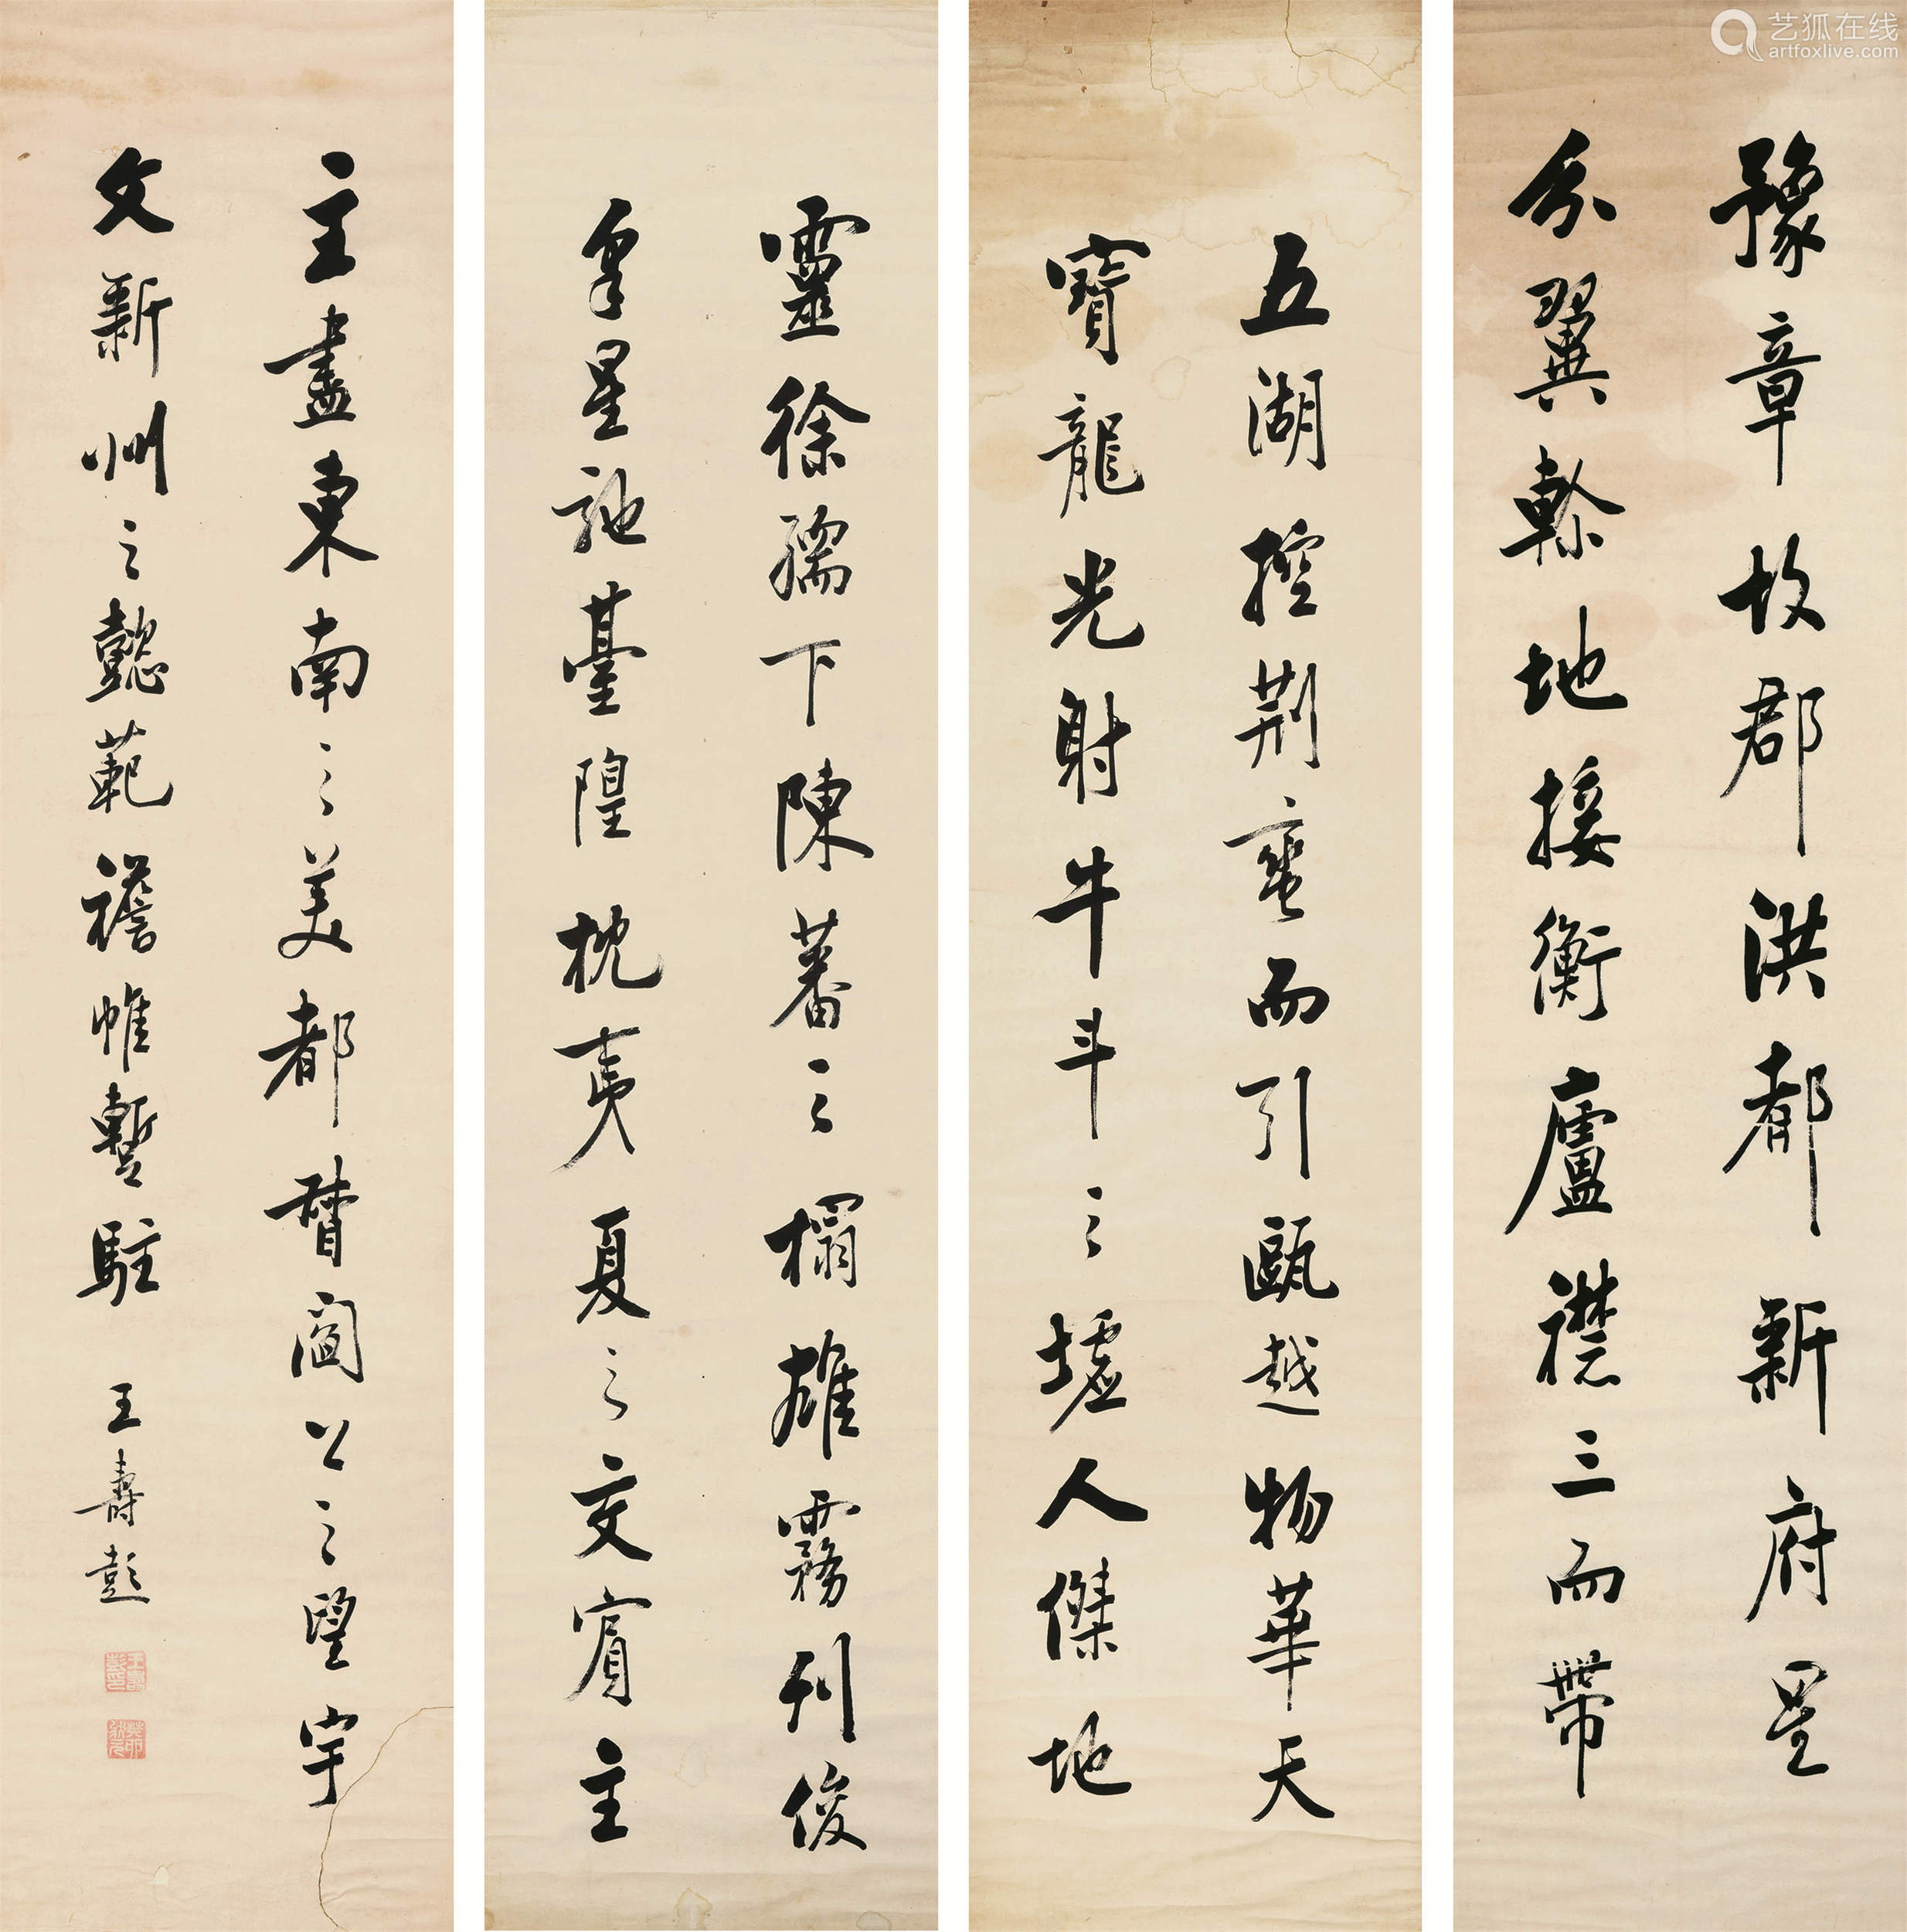 豫章故郡洪都新府星
分翼軫地接衡廬襟三而帶
五湖控荆蛮而引甌越物華天
寶龍光射牛斗之墟人傑地
靈徐孺下陳蕃之榻雄霧列俊
采星馳臺隍枕夷夏之交賓主
主盡東南之美都督閻公之望宇
文新州之懿範襜帷暫駐
王壽彭
王壽彭印
癸卯狀元
艺狐在线
artfoxlive.com